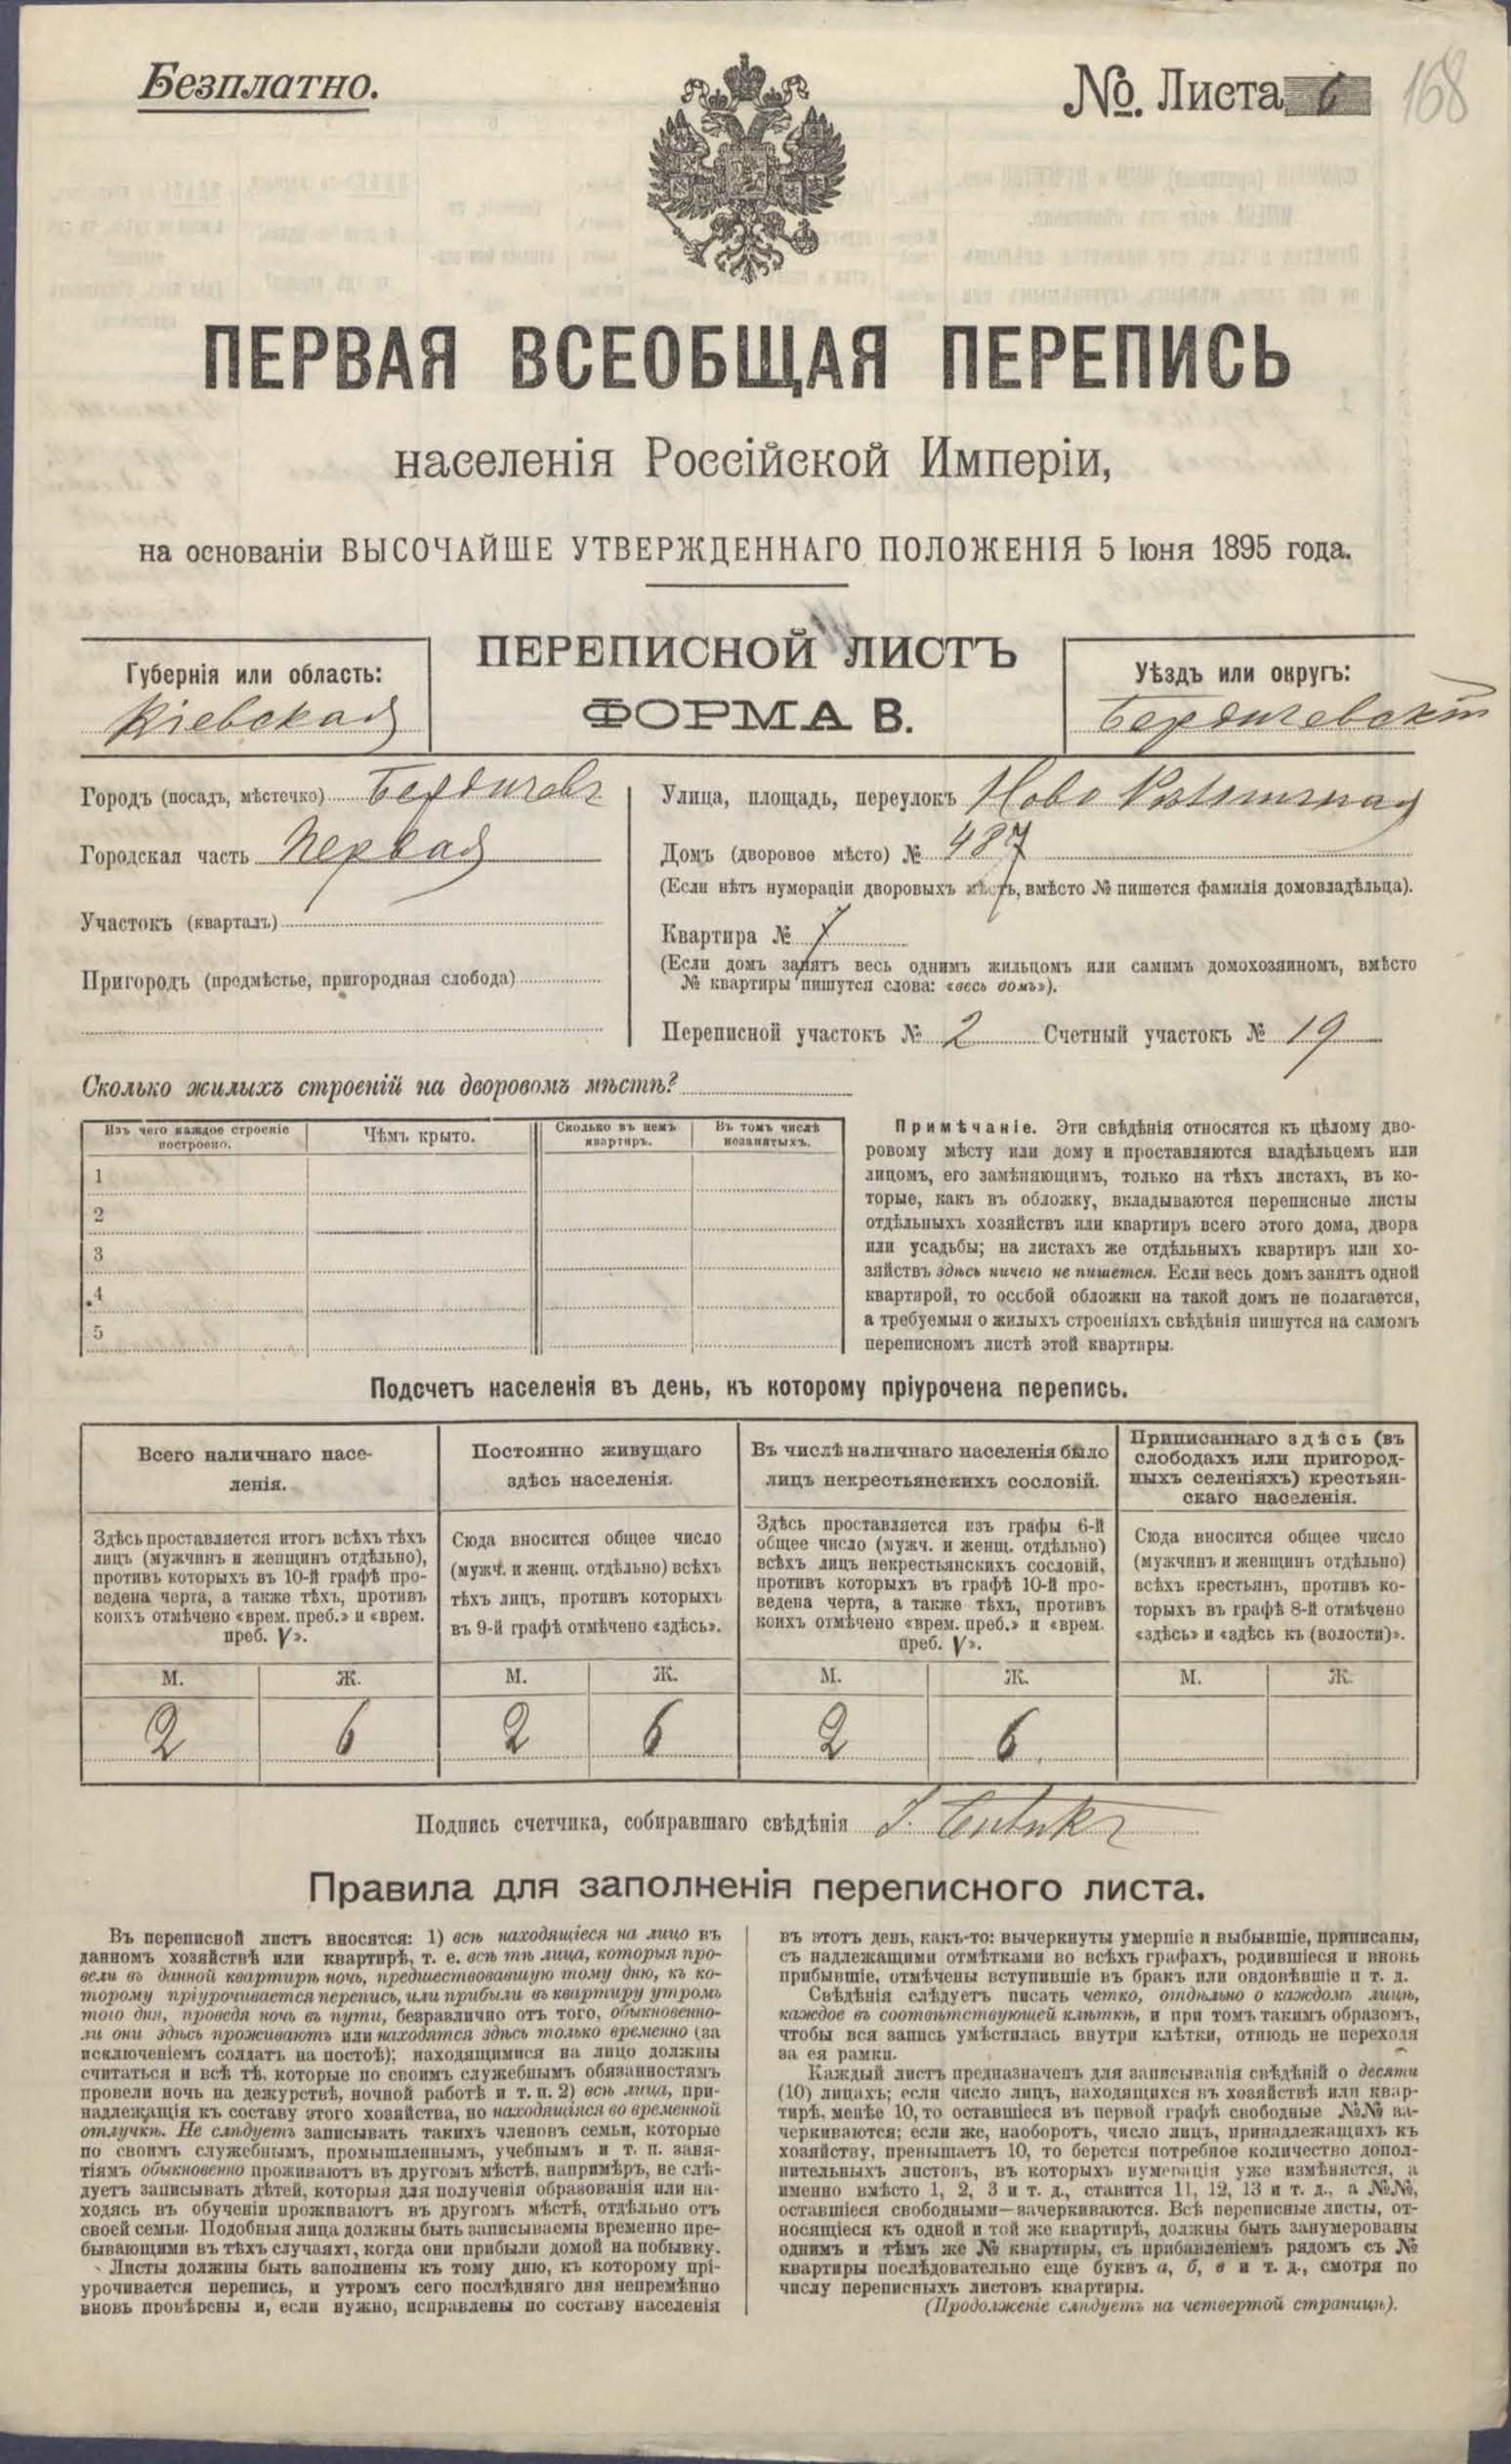 Безплатно.
№. Листа 6
168
ПЕРВАЯ ВСЕОБЩАЯ ПЕРЕПИСЬ
населенія Россійской Имперіи,
на основаніи ВЫСОЧАЙШЕ УТВЕРЖДЕННАГО ПОЛОЖЕНІЯ 5 Іюня 1895 года.
ПЕРЕПИСНОЙ ЛИСТЪ
ФОРМА В.
Губернія или область:
Кіевская
Уѣздъ или округъ:
Бердичевскій
Городъ (посадъ, мѣстечко) Бердичевъ
Городская часть Первая
Участокъ (кварталъ)
Пригородъ (предмѣстье, пригородная слобода)
Улица, площадь, переулокъ Ново
Домъ (дворовое мѣсто) № 487
(Если нѣтъ нумораціи дворовыхъ мѣстъ, вмѣсто № пишется фамилія домовладѣльца).
Квартира № 7
(Если домъ занятъ весь однимъ жильцомъ или самимъ домохозяиномъ, вмѣсто
№ квартиры пишутся слова: «весь домъ»).
Переписной участокъ № 2 Счетный участокъ № 19
Сколько жилыхъ строеній на дворовомъ мѣстѣ?
Изъ чего каждое строеніе
построено.
Чѣмъ крыто.
Сколько въ немъ
квартиръ.
Въ томъ числѣ
незанятыхъ.
1
2
3
4
5
Примѣчаніе. Эти свѣдѣнія относятся къ цѣлому дво-
ровому мѣсту или дому и проставляются владѣльцемъ или
лицомъ, его замѣняющимъ, только на тѣхъ листахъ, въ ко-
торые, какъ въ обложку, вкладываются переписные листы
отдѣльныхъ хозяйствъ или квартиръ всего этого дома, двора
или усадьбы; на листахъ же отдѣльныхъ квартиръ или хо-
зяйствъ здѣсь ничего не пишется. Если весь домъ занятъ одной
квартирой, то особой обложки на такой домъ не полагается,
а требуемыя о жилыхъ строеніяхъ свѣдѣнія пишутся на самомъ
переписномъ листѣ этой квартиры.
Подсчетъ населенія въ день, къ которому пріурочена перепись.
Всего наличнаго насе-
ленія.
Здѣсь проставляется итогъ всѣхъ тѣхъ
лицъ (мужчинъ и женщинъ отдѣльно),
противъ которыхъ въ 10-й графѣ про-
ведена черта, а также тѣхъ, противъ
коихъ отмѣчено «врем. преб.» и «врем.
преб. V».
М. Ж.
2 6
Постоянно живущаго
здѣсь населенія.
Сюда вносится общее число
(мужч. и женщ. отдѣльно) всѣхъ
тѣхъ лицъ, противъ которыхъ
въ 9-й графѣ отмѣчено «здѣсь».
М. Ж.
2 6
Въ числѣ наличнаго населенія было
лицъ некрестьянскихъ сословій.
Здѣсь проставляется изъ графы 6-й
общее число (мужч. и женщ. отдѣльно)
всѣхъ лицъ некрестьянскихъ сословій,
противъ которыхъ въ графѣ 10-й про-
ведена черта, а также тѣхъ, противъ
коихъ отмѣчено «врем. преб.» и «врем.
преб. V».
М. Ж.
2 6
Приписаннаго здѣсь (въ
слободахъ или пригород-
ныхъ селеніяхъ) крестьян-
скаго населенія.
Сюда вносится общее число
(мужчинъ и женщинъ отдѣльно)
всѣхъ крестьянъ, противъ ко-
торыхъ въ графѣ 8-й отмѣчено
«здѣсь» и «здѣсь къ (волости)».
М. Ж.
Подпись счетчика, собиравшаго свѣдѣнія
Правила для заполненія переписного листа.
Въ переписной листъ вносятся: 1) всѣ находящіеся на лицо въ
данномъ хозяйствѣ или квартирѣ, т. е. всѣ тѣ лица, которыя про-
вели въ данной квартирѣ ночь, предшествовавшую тому дню, къ ко-
торому пріурочивается перепись, или прибыли въ квартиру утромъ
того дня, проведя ночь въ пути, безразлично отъ того, обыкновенно-
ли они здѣсь проживаютъ или находятся здѣсь только временно (за
исключеніемъ солдатъ на постоѣ); находящимися на лицо должны
считаться и всѣ тѣ, которые по своимъ служебнымъ обязанностямъ
провели ночь на дежурствѣ, ночной работѣ и т. п. 2) всѣ лица, при-
надлежащія къ составу этого хозяйства, но находящіяся во временной
отлучкѣ. Не слѣдуетъ записывать такихъ членовъ семьи, которые
по своимъ служебнымъ, промышленнымъ, учебнымъ и т. п. заня-
тіямъ обыкновенно проживаютъ въ другомъ мѣстѣ, напримѣръ, не слѣ-
дуетъ записывать дѣтей, которыя для полученія образованія или на-
ходясь въ обученіи проживаютъ въ другомъ мѣстѣ, отдѣльно отъ
своей семьи. Подобныя лица должны быть записываемы временно пре-
бывающими въ тѣхъ случаяхъ, когда они прибыли домой на побывку.
Листы должны быть заполнены къ тому дню, къ которому прі-
урочивается перепись, и утромъ сего послѣдняго дня непремѣнно
вновь провѣрены и, если нужно, исправлены по составу населенія
въ этотъ день, какъ-то: вычеркнуты умершіе и выбывшіе, приписаны,
съ надлежащими отмѣтками во всѣхъ графахъ, родившіеся и вновь
прибывшіе, отмѣчены вступившіе въ бракъ или овдовѣвшіе и т. д.
Свѣдѣнія слѣдуетъ писать четко, отдѣльно о каждомъ лицѣ,
каждое въ соотвѣтствующей клѣткѣ, и при томъ такимъ образомъ,
чтобы вся запись умѣстилась внутри клѣтки, отнюдь не переходя
за ея рамки.
Каждый листъ предназначенъ для записыванія свѣдѣній о десяти
(10) лицахъ; если число лицъ, находящихся въ хозяйствѣ или квар-
тирѣ, менѣе 10, то оставшіеся въ первой графѣ свободные №№ за-
черкиваются; если же, наоборотъ, число лицъ, принадлежащихъ къ
хозяйству, превышаетъ 10, то берется потребное количество допол-
нительныхъ листовъ, въ которыхъ нумерація уже измѣняется, а
именно вмѣсто 1, 2, 3 и т. д., ставится 11, 12, 13 и т. д., а №№,
оставшіеся свободными—зачеркиваются. Всѣ переписные листы, от-
носящіеся къ одной и той же квартирѣ, должны быть занумерованы
однимъ и тѣмъ же № квартиры, съ прибавленіемъ рядомъ съ №
квартиры послѣдовательно еще буквъ а, б, в и т. д., смотря по
числу переписныхъ листовъ квартиры.
(Продолженіе слѣдуетъ на четвертой страницѣ).